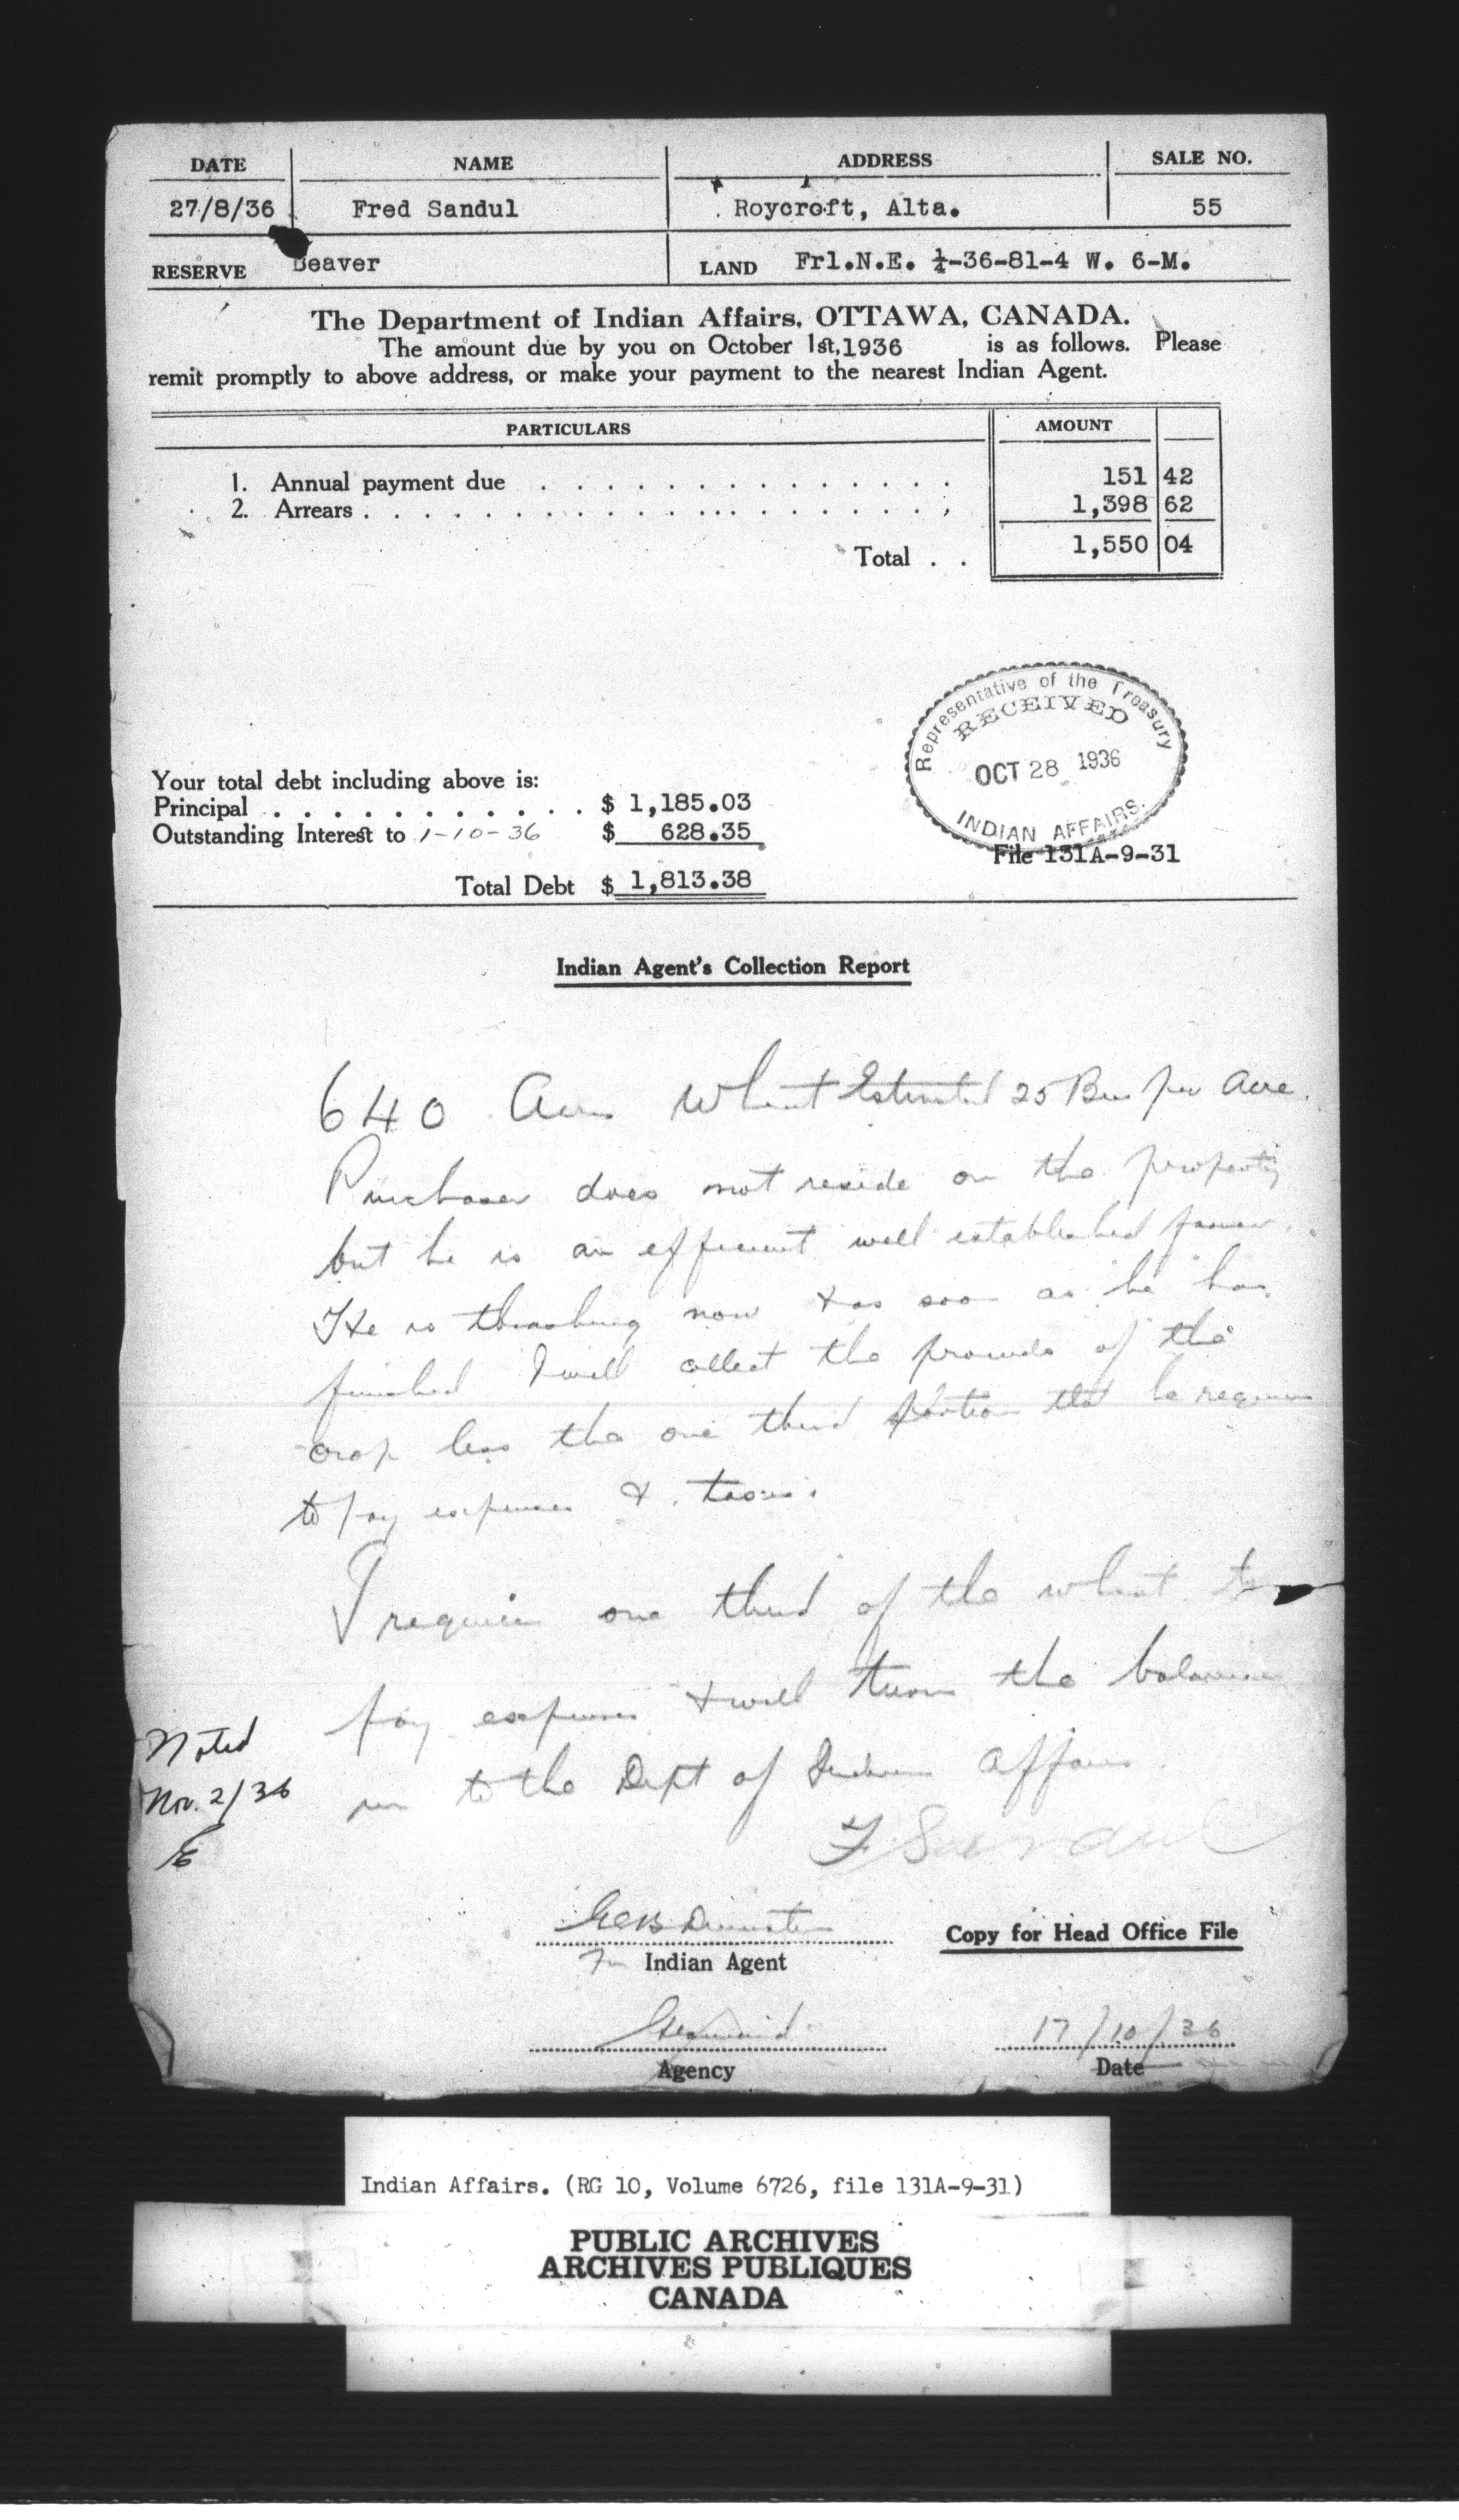 DATE NAME ADDRESS SALE NO.
27/8/36 Fred Sandul Roycroft, Alta. 55
RESERVE Beaver LAND Frl.N.E. ¼-36-81-4 W. 6-M.
The Department of Indian Affairs, OTTAWA, CANADA.
The amount due by you on October 1st, 1936 is as follows. Please
remit promptly to above address, or make your payment to the nearest Indian Agent.
PARTICULARS AMOUNT
1. Annual payment due . . . . . . . . . . . . . . . 151 42
2. Arrears . . . . . . . . . . . . . . . . . . . . 1,398 62
Total . . 1,550 04
Representative of the Treasury
RECEIVED
OCT 28 1936
INDIAN AFFAIRS.
File 131A-9-31
Your total debt including above is:
Principal . . . . . . . . . . . $ 1,185.03
Outstanding Interest to 1-10-36 $ 628.35
Total Debt $ 1,813.38
Indian Agent's Collection Report
640 Acres Wheat Estimated 25 Bus per Acre.
Purchaser does not reside on the property
but he is an efficient well established farmer.
He is thrashing now & as soon as he has
finished I will collect the proceeds of the
crop less the one third portion that he requires
to pay expenses & taxes.
I require one third of the wheat to
pay expenses & will turn the balance
in to the Dept of Indian Affairs
F Sandul
Noted
Nov. 2/36
For Indian Agent
Copy for Head Office File
17/10/36
Agency Date
Indian Affairs. (RG 10, Volume 6726, file 131A-9-31)
PUBLIC ARCHIVES
ARCHIVES PUBLIQUES
CANADA